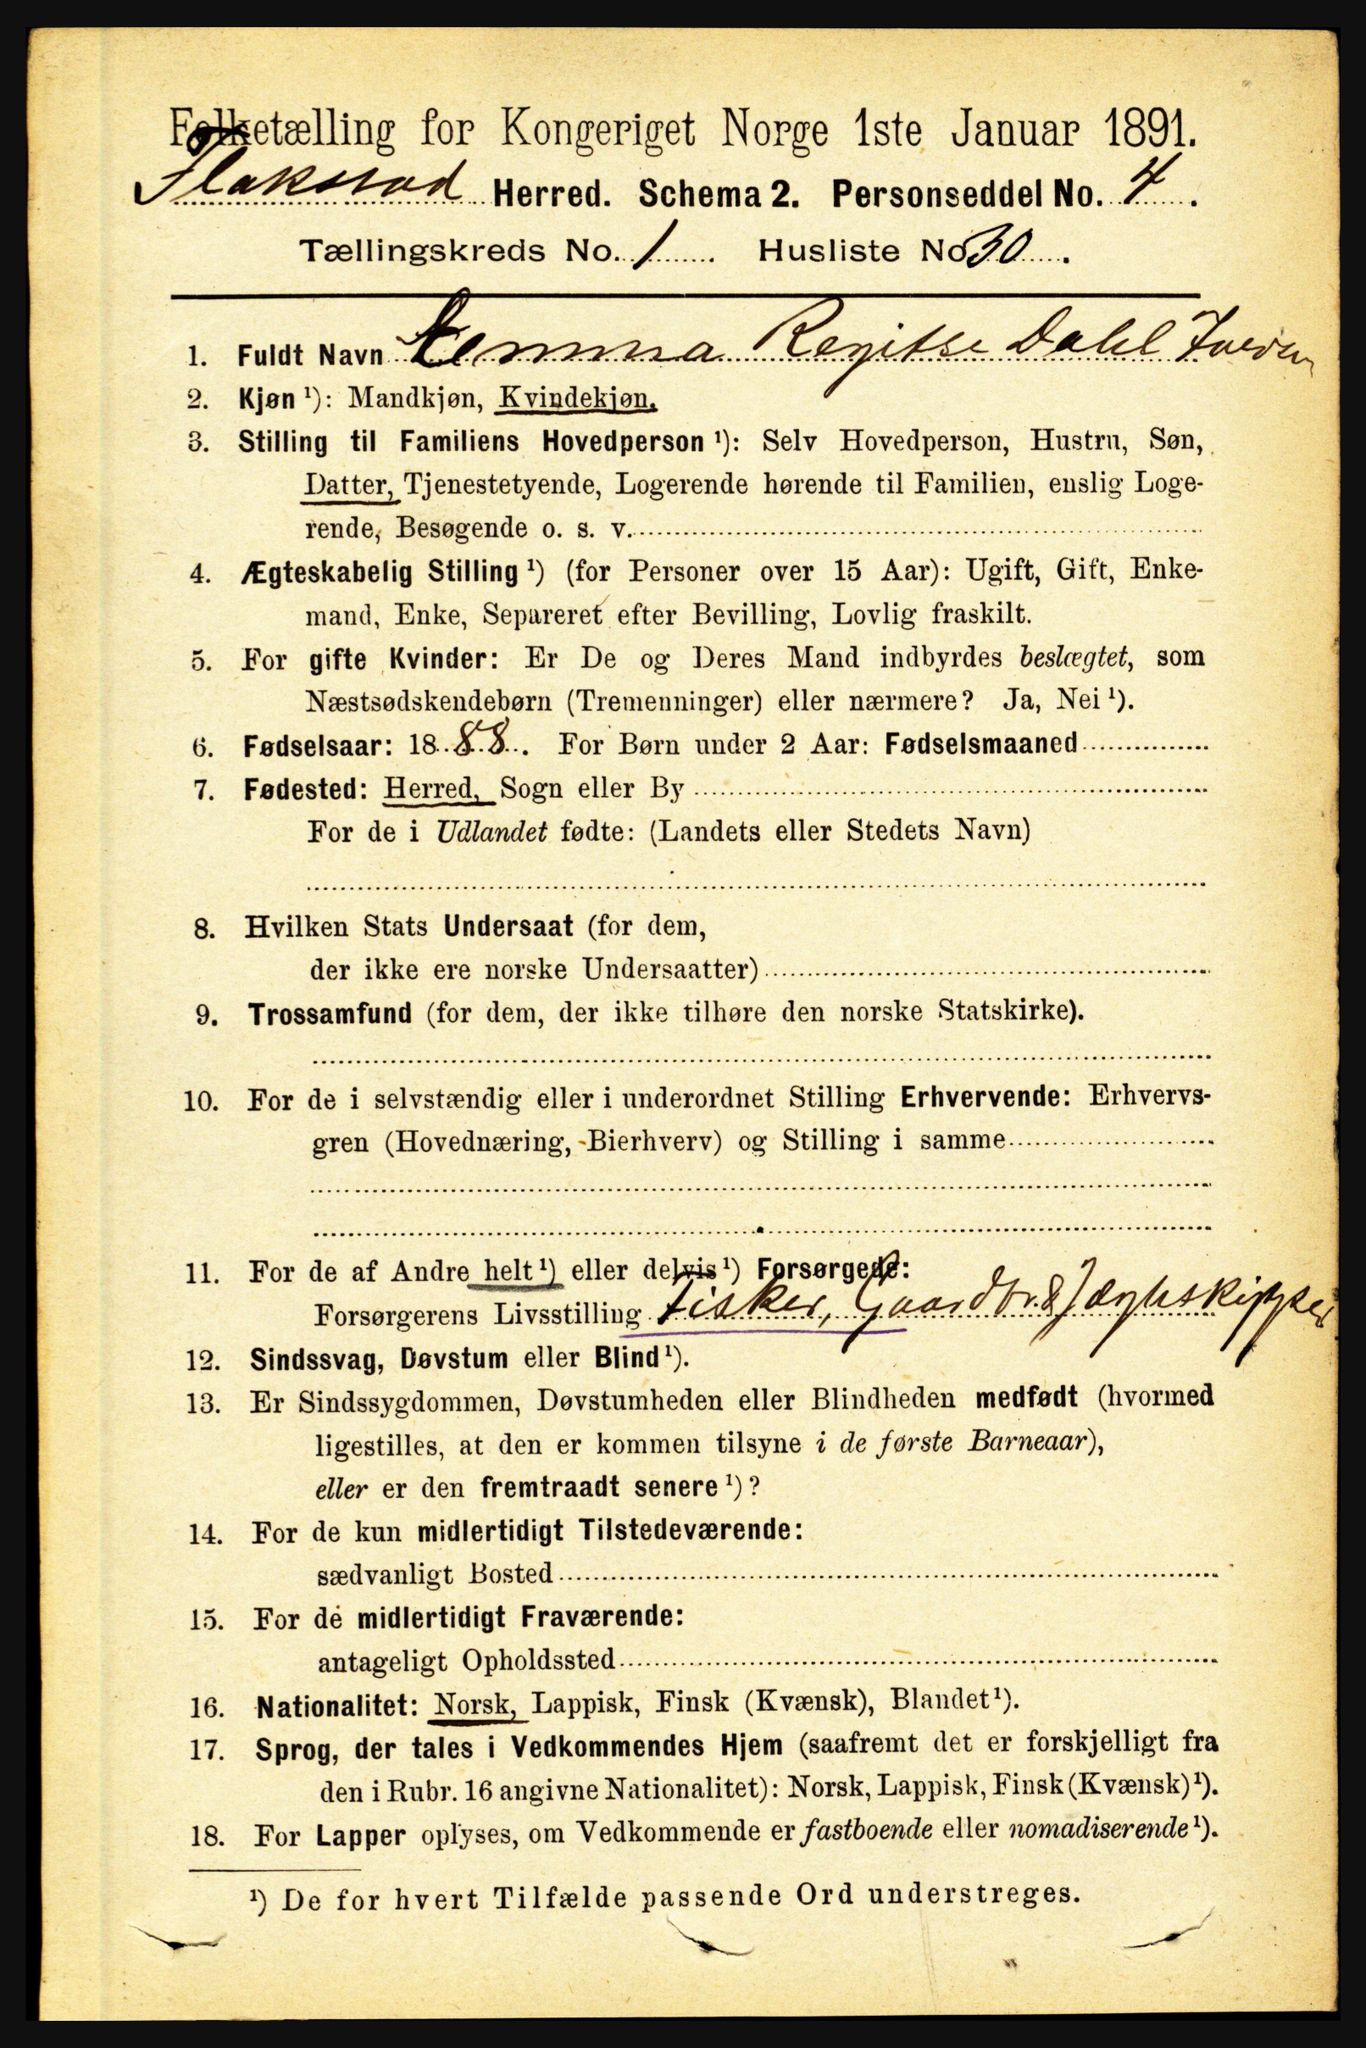 Folketælling for Kongeriget Norge 1ste Januar 1891.
Flakstad Herred. Schema 2. Personseddel No. 4.
Tællingskreds No. 1. Husliste No 30.
1. Fuldt Navn Emma Regitse Dahl
2. Kjøn ¹): Mandkjøn, Kvindekjøn.
3. Stilling til Familiens Hovedperson ¹): Selv Hovedperson, Hustru, Søn,
Datter, Tjenestetyende, Logerende hørende til Familien, enslig Loge-
rende, Besøgende o. s. v.
4. Ægteskabelig Stilling ¹) (for Personer over 15 Aar): Ugift, Gift, Enke-
mand, Enke, Separeret efter Bevilling, Lovlig fraskilt.
5. For gifte Kvinder: Er De og Deres Mand indbyrdes beslægtet, som
Næstsødskendebørn (Tremenninger) eller nærmere? Ja, Nei ¹).
6. Fødselsaar: 1888. For Børn under 2 Aar: Fødselsmaaned
7. Fødested: Herred, Sogn eller By
For de i Udlandet fødte: (Landets eller Stedets Navn)
8. Hvilken Stats Undersaat (for dem,
der ikke ere norske Undersaatter)
9. Trossamfund (for dem, der ikke tilhøre den norske Statskirke).
10. For de i selvstændig eller i underordnet Stilling Erhvervende: Erhvervs-
gren (Hovednæring, Bierhverv) og Stilling i samme
11. For de af Andre helt ¹) eller delvis ¹) Forsørgede:
Forsørgerens Livsstilling Fisker, Gaardbr & Jægtskipper
12. Sindssvag, Døvstum eller Blind ¹).
13. Er Sindssygdommen, Døvstumheden eller Blindheden medfødt (hvormed
ligestilles, at den er kommen tilsyne i de første Barneaar),
eller er den fremtraadt senere ¹)?
14. For de kun midlertidigt Tilstedeværende:
sædvanligt Bosted
15. For de midlertidigt Fraværende:
antageligt Opholdssted
16. Nationalitet: Norsk, Lappisk, Finsk (Kvænsk), Blandet ¹).
17. Sprog, der tales i Vedkommendes Hjem (saafremt det er forskjelligt fra
den i Rubr. 16 angivne Nationalitet): Norsk, Lappisk, Finsk (Kvænsk) ¹).
18. For Lapper oplyses, om Vedkommende er fastboende eller nomadiserende ¹).
¹) De for hvert Tilfælde passende Ord understreges.